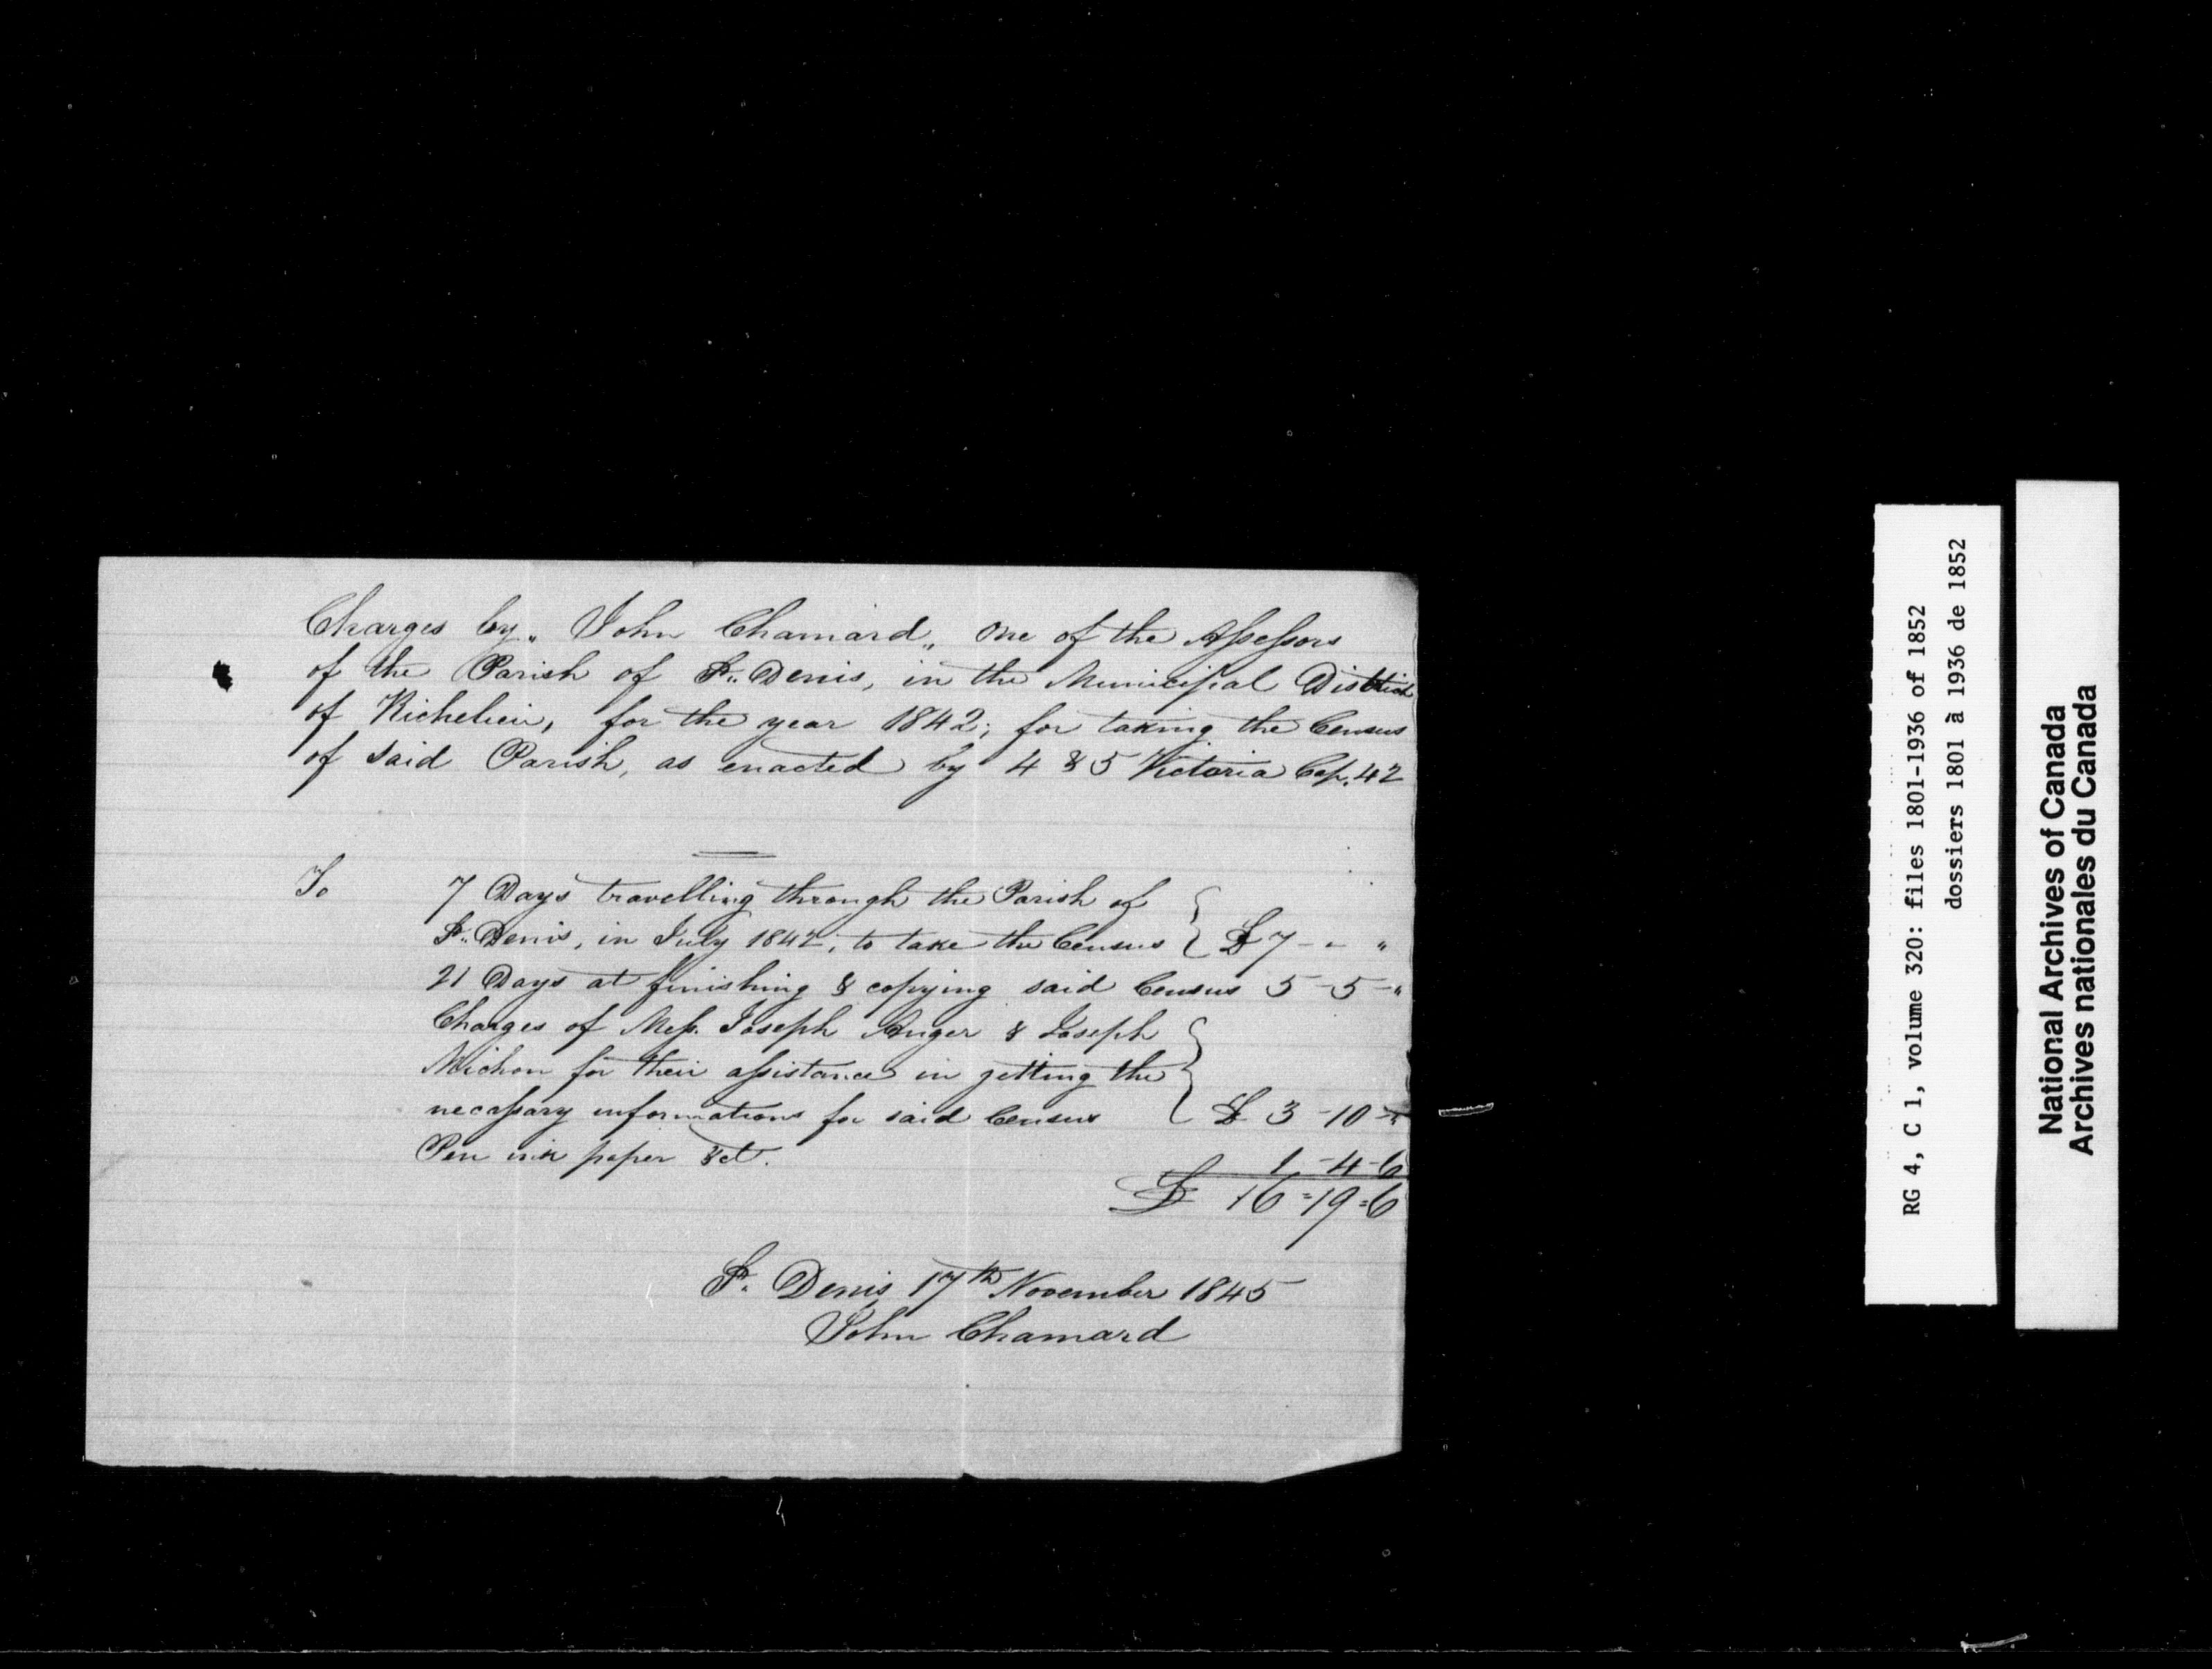 Charges by „ John Chamard „ one of the Assessors
of the Parish of St. Denis, in the Municipal District
of Richelieu, for the year 1842; for taking the Census
of said Parish, as enacted by 4 & 5 Victoria Cap. 42
To 7 Days travelling through the Parish of
St. Denis, in July 1842, to take the Census £ 7 - - "
21 Days at finishing & copying said Census 5 - 5 - "
Charges of Mess. Joseph Auger & Joseph
Michon for their assistance in getting the
necassary informations for said Census £ 3 - 10 - "
Pen ink paper &ct. 1 - 4 - 6
£ 16 = 19 = 6
St. Denis 17th November 1845
John Chamard
RG 4, C 1, volume 320: files 1801-1936 of 1852
dossiers 1801 à 1936 de 1852
National Archives of Canada
Archives nationales du Canada